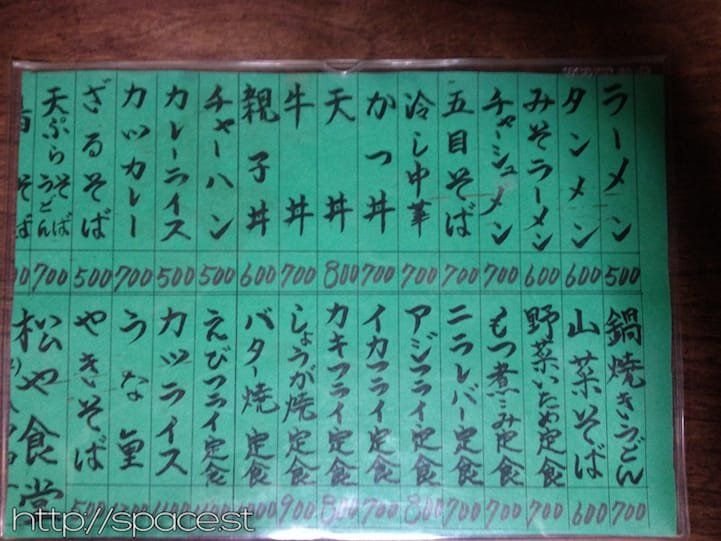 ラーメン 500
タンメン 600
みそラーメン 600
チャーシュメン 700
五目そば 700
冷し中華 700
かつ丼 700
天丼 800
牛丼 700
親子丼 600
チャーハン 500
カレーライス 500
カツカレー 700
ざるそば 500
天ぷらそばうどん 700
そば
鍋焼きうどん 700
山菜そば 600
野菜いため定食 700
もつ煮こみ定食 700
ニラレバー定食 700
アジフライ定食 800
イカフライ定食 700
カキフライ定食 800
しょうが焼定食 900
バター焼定食
えびフライ定食
カツライス
うな重
やきそば 500
松や食堂
http://space.st